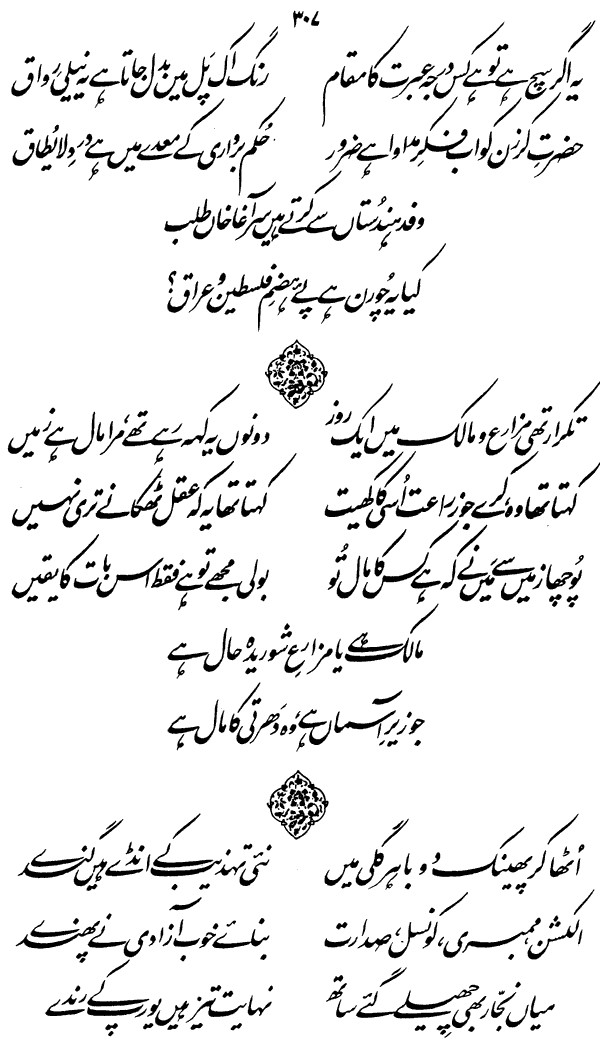 ۳۰۷
یہ اگر سچ ہے تو ہے کس درجہ عبرت کا مقام رنگ اک پَل میں بدل جاتا ہے یہ نیلی رَواق
حضرتِ کرزن کو اب فکرِ مداوا ہے ضرور حُکم برداری کے معدے میں ہے دردِ لا یُطاق
وفد ہندُستاں سے کرتے ہیں سر آغا خاں طلب
کیا یہ چُورن ہے پئے ہضمِ فلسطین و عراق؟
تکرار تھی مزارع و مالک میں ایک روز دونوں یہ کہہ رہے تھے، مرا مال ہے زمیں
کہتا تھا وہ، کرے جو زراعت اُسی کا کھیت کہتا تھا یہ کہ عقل ٹھکانے تری نہیں
پُوچھا زمیں سے مَیں نے کہ ہے کس کا مال تُو بولی مجھے تو ہے فقط اس بات کا یقیں
مالک ہے یا مزارعِ شوریدہ حال ہے
جو زیرِ آسماں ہے، وہ دَھرتی کا مال ہے
اُٹھا کر پھینک دو باہر گلی میں نئی تہذیب کے انڈے ہیں گندے
الکشن، ممبری، کونسل، صدارت بنائے خوب آزادی نے پھندے
میاں نجّار بھی چھیلے گئے ساتھ نہایت تیز ہیں یورپ کے رندے